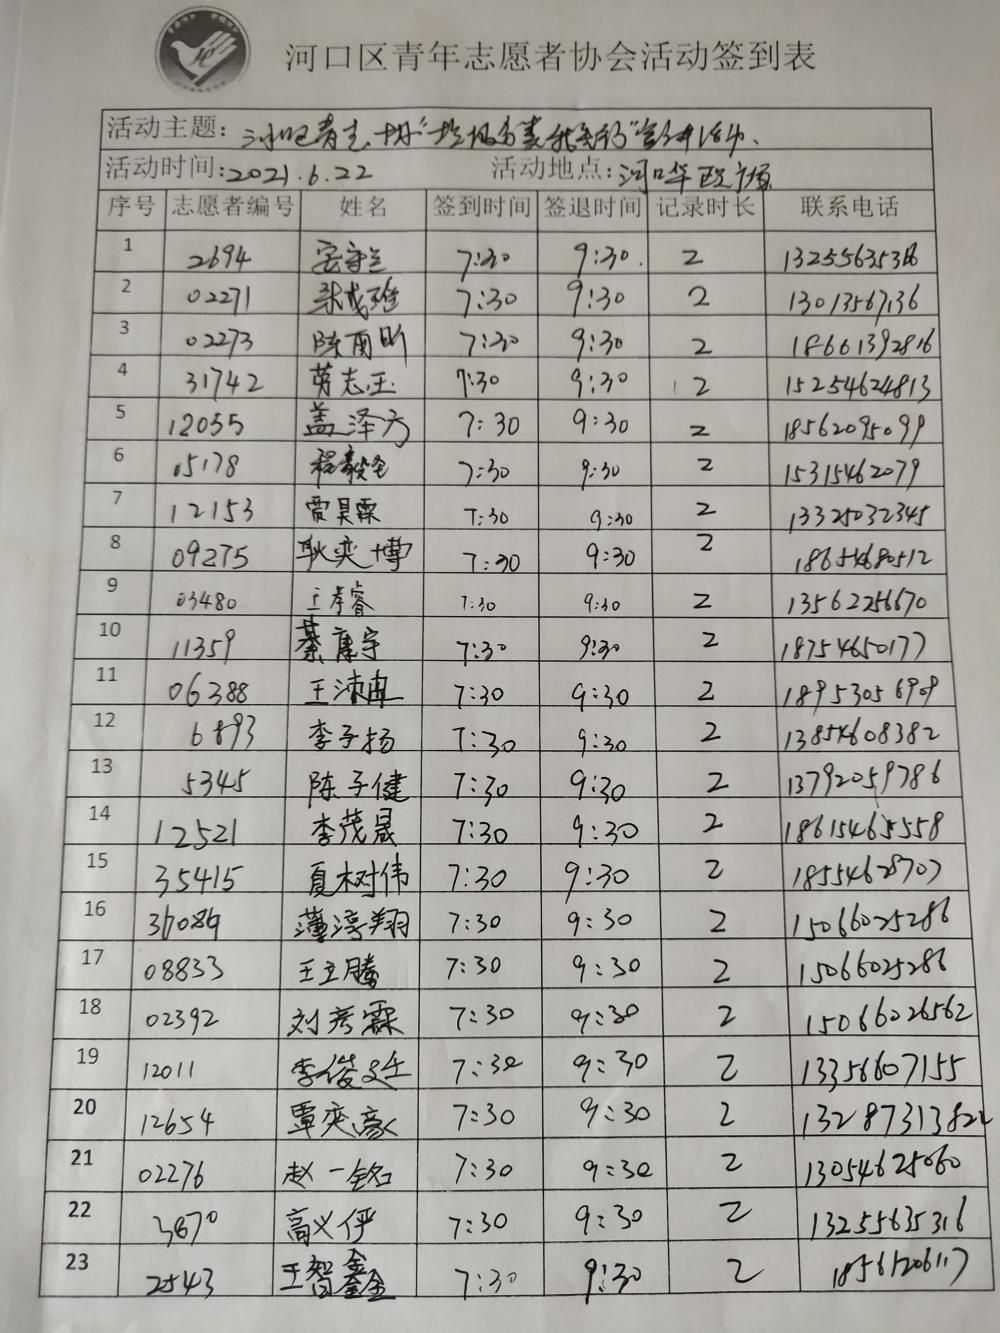 河口区青年志愿者协会活动签到表
活动主题：
活动时间：2021.6.22 活动地点：河口华
序号 志愿者编号 姓名 签到时间 签退时间 记录时长 联系电话
1 2694 7:30 9:30. 2
2 02271 7:30 9:30 2 13013567136
3 02273 陈雨昕 7:30 9:30 2 18661392816
4 31742 志玉 7:30 9:30 2 15254624813
5 12055 盖泽方 7:30 9:30 2 18562095099
6 05178 程毅 7:30 9:30 2 15315462079
7 12153 贾昊霖 7:30 9:30 2 13325032345
8 09275 耿奕博 7:30 9:30 2 18654680512
9 03480 王孝睿 7:30 9:30 2 13562256670
10 11359 綦康宇 7:30 9:30 2 18754650177
11 06388 王沛 7:30 9:30 2 18953056909
12 6893 李子扬 7:30 9:30 2 13854608382
13 5345 陈子健 7:30 9:30 2 13792059786
14 12521 李茂晟 7:30 9:30 2 18615465558
15 35415 夏树伟 7:30 9:30 2 18554628707
16 薄淳翔 7:30 9:30 2 15066025286
17 08833 王立腾 7:30 9:30 2 15066025286
18 02392 刘彦霖 7:30 9:30 2 15066026562
19 12011 李俊廷 7:30 9:30 2 13356607155
20 12654 覃奕豪 7:30 9:30 2 13287313822
21 02276 赵一铭 7:30 9:30 2 13054625060
22 3670 高义伊 7:30 9:30 2 13255635316
23 2543 王智鑫 7:30 9:30 2 18561206117